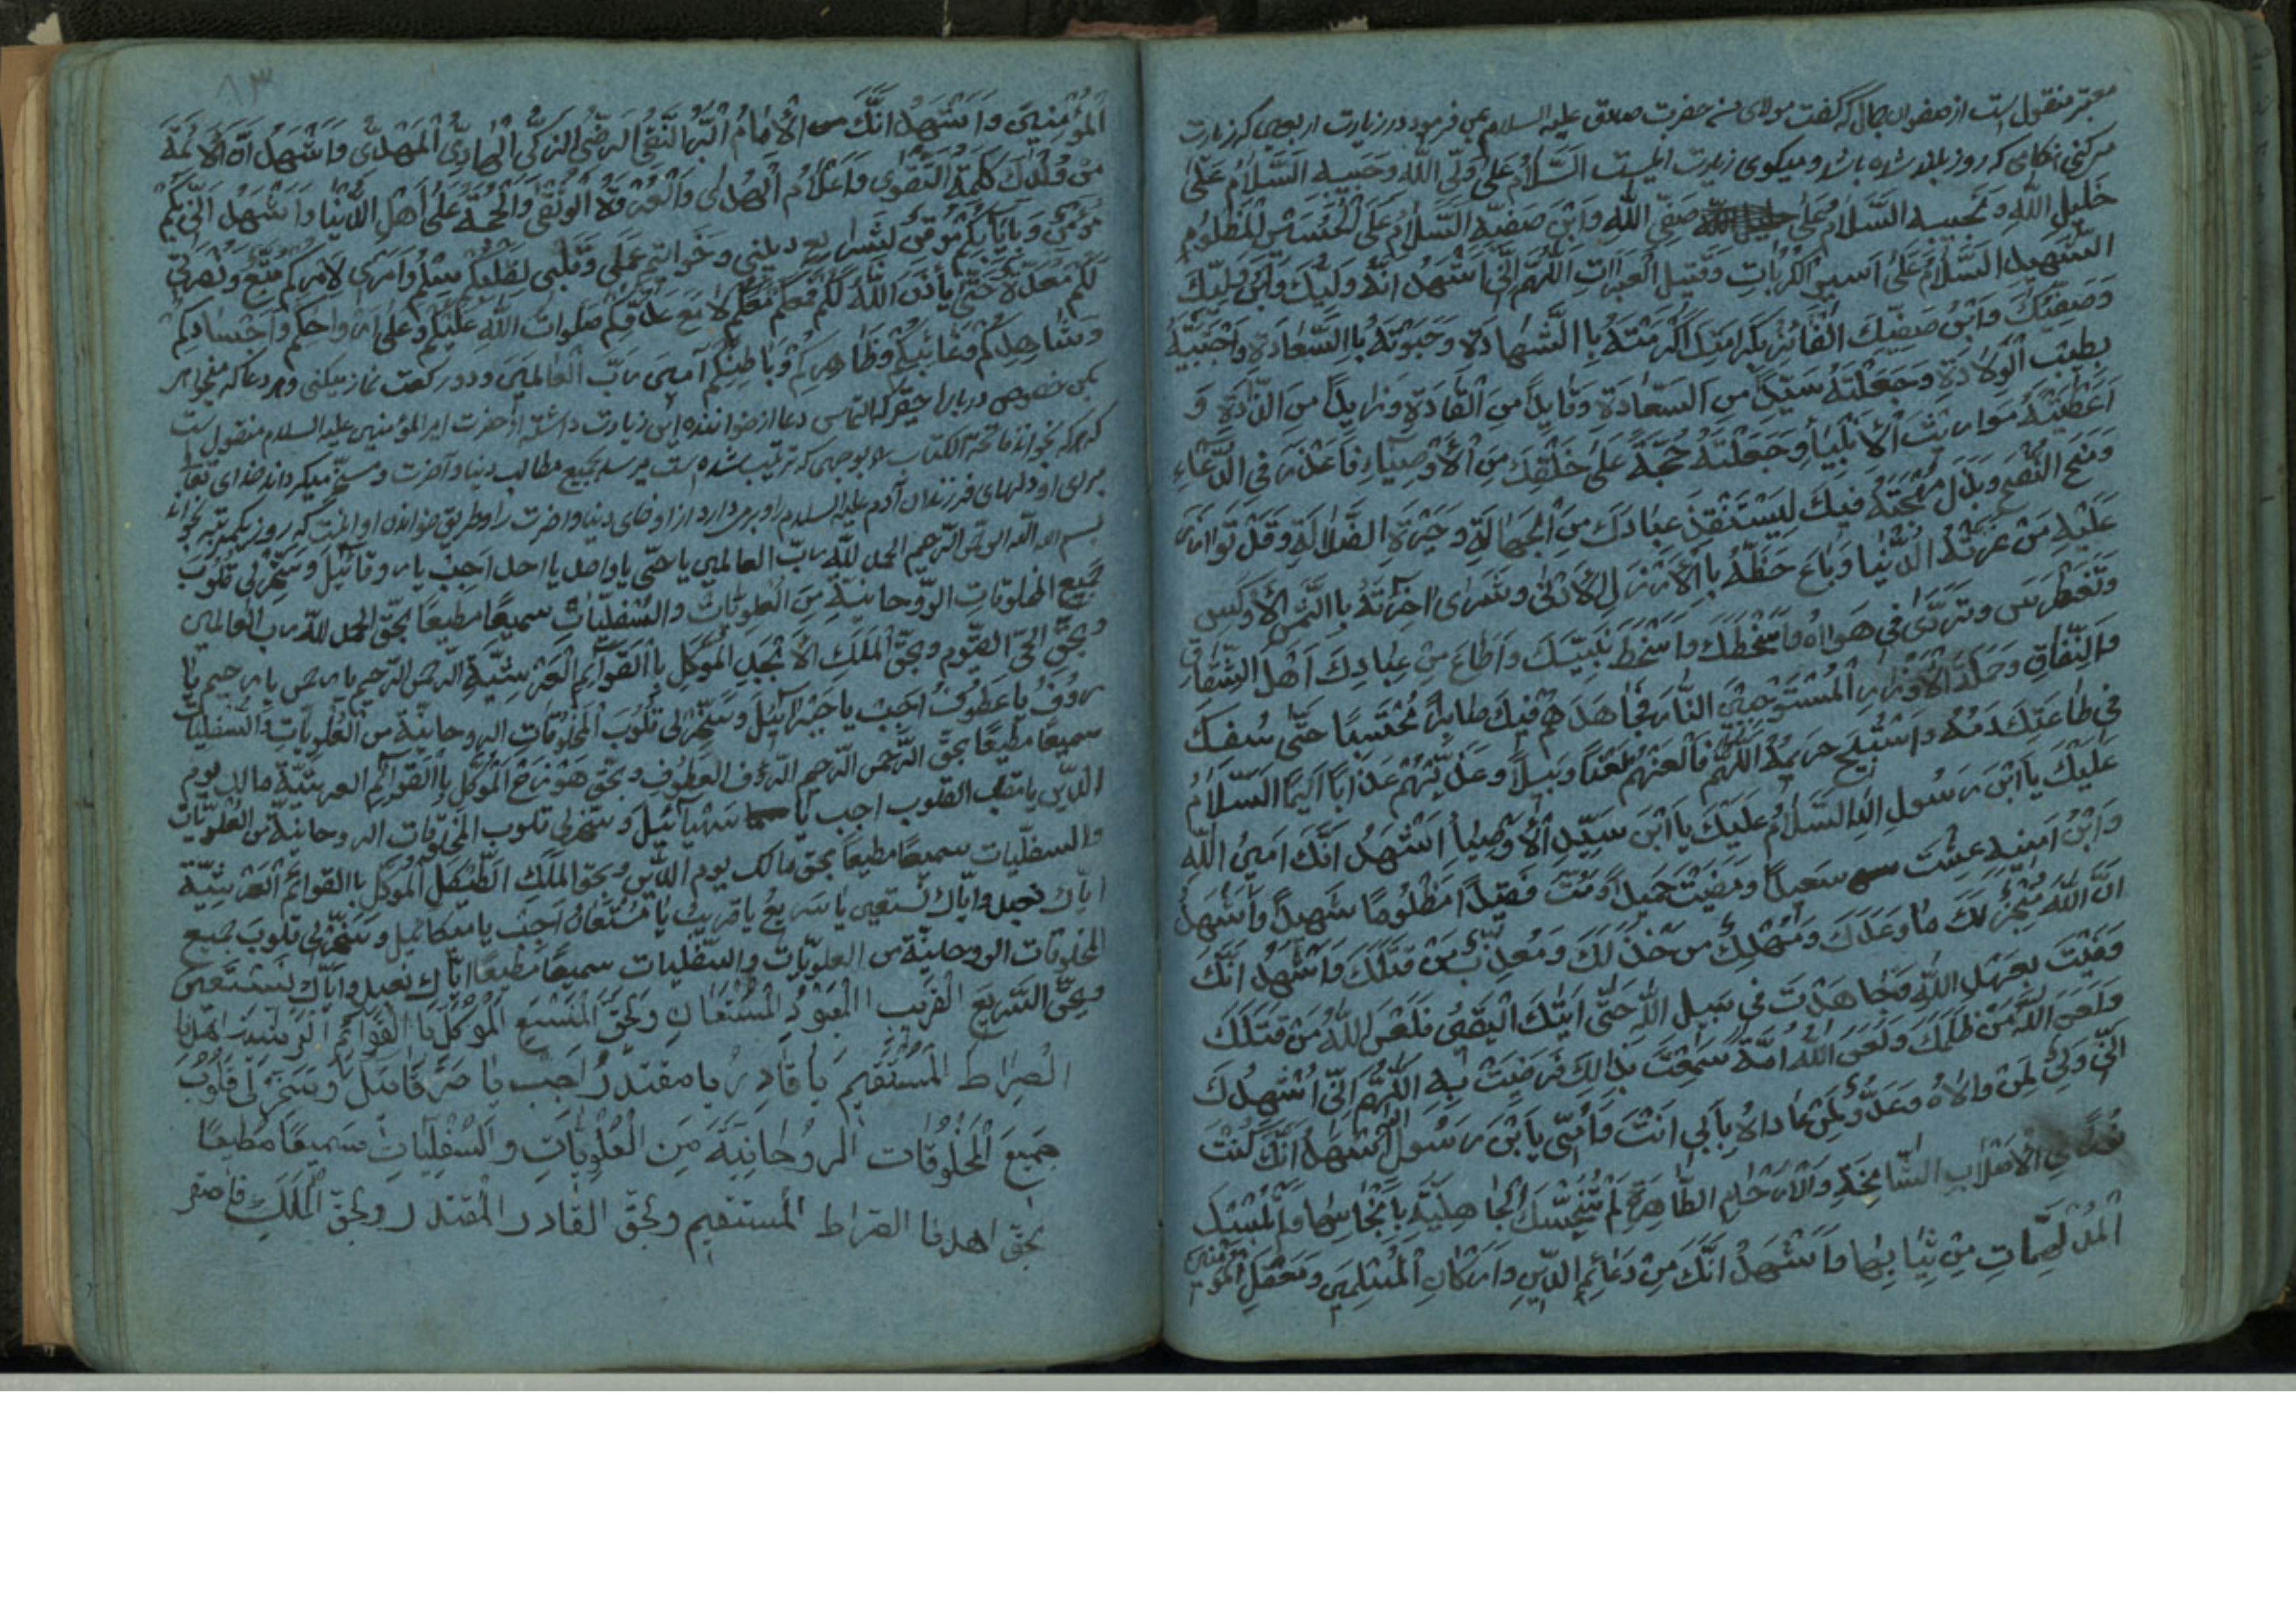 معتبر منقول است از صفوان جمال که گفت مولای من حضرت صادق علیه السلام بمن فرمود در زیارت اربعین که زیارت
میکنی هنگامی که روز بلند شده باشد و میکوی زیارت اینست اَلسَّلامُ عَلیٰ وَلِّیِ اللّٰهِ وَحَبیبِهِ اَلسَّلامُ عَلیٰ
خَلیلِ اللّٰهِ وَنَجیبِهِ السَّلامُ عَلیٰ صَفِّیِ اللّٰهِ وَابْنِ صَفیِّهِ اَلسَّلامُ عَلَی الْحُسَیْنِ الْمَظْلُومِ
الشَّهیدِ السَّلامُ عَلیٰ اَسیرِ الْکُرُباتِ وَقَتیلِ الْعَبَراتِ اَللّٰهُمَّ اِنّی اَشْهَدُ اَنَّهُ وَلِیُّکَ وَابْنُ وَلِیِّکَ
وَصَفِیُّکَ وَابْنُ صَفِیِّکَ الْفائِزُ بِکَرامَتِکَ اَکْرَمْتَهُ بِاالشَّهادَةِ وَحَبَوْتَهُ بِاالسَّعادَةِ وَاجْتَبَیْتَهُ
بِطیبِ الْوِلادَةِ وَجَعَلْتَهُ سَیِّداً مِنَ السّادَةِ وَقایِداً مِنَ الْقادَةِ وَذایِداً مِنَ الذّادَةِ وَ
اَعْطَیْتَهُ مَواریثَ الْاَنْبِیآءِ وَجَعَلْتَهُ حُجَّةً عَلیٰ خَلْقِکَ مِنَ الْاَوْصِیآءِ فَاَعْذَرَ فِی الدُّعآءِ
وَمَنَحَ النُّصْحَ وَبَذَلَ مُهْجَتَهُ فیکَ لِیَسْتَنْقِذَ عِبادَکَ مِنَ الْجَهالَةِ وَحَیْرَةِ الضَّلالَةِ وَقَدْ تَوازَرَ
عَلَیْهِ مَنْ غَرَّتْهُ الدُّنْیا وَباعَ حَظَّهُ بِاالْاَرْذَلِ الْاَدْنیٰ وَشَریٰ اخِرَتَهُ بِاالثَّمَنِ الْاَوْکَسِ
وَتَغَطْرَسَ وَتَرَدّیٰ فی هَواهُ وَاَسْخَطَکَ وَاَسْخَطَ نَبِیَّکَ وَاَطاعَ مِنْ عِبادِکَ اَهْلَ الشِّقاقِ
وَالنِّفاقِ وَحَمَلَةَ الْاَوْزارِ الْمُسْتَوْجِبینَ النّارَ فَجاهَدَهُمْ فیکَ صابِراً مُحْتَسِباً حَتّیٰ سُفِکَ
فی طاعَتِکَ دَمُهُ وَاسْتُبیحَ حَریمُهُ اَللّٰهُمَّ فَالْعَنْهُمْ لَعْناً وَبیلاً وَعَذِّبْهُمْ عَذاباً اَلیماً اَلسَّلامُ
عَلَیْکَ یَاابْنَ رَسُولِ اللهِ السَّلامُ عَلَیْکَ یَاابْنَ سَیِّدِ الْاَوْصِیآءِ اَشْهَدُ اَنَّکَ اَمینُ اللّٰهِ
وَابْنُ اَمینِهِ عِشْتَ سَعیداً وَمَضَیْتَ حَمیداً وَمُتَّ فَقیداً مَظْلُوماً شَهیداً وَاَشْهَدُ
اَنَّ اللّٰهَ مُنْجِزٌ لَکَ ما وَعَدَکَ وَمُهْلِکٌ مَنْ خَذَلَکَ وَمُعَذِّبٌ مَنْ قَتَلَکَ وَاَشْهَدُ اَنَّکَ
وَفَیْتَ بِعَهْدِ اللّٰهِ وَجاهَدْتَ فی سَبیلِ اللّٰهِ حَتّیٰ اَتیٰکَ الْیَقینُ فَلَعَنَ اللّٰهُ مَنْ قَتَلَکَ
وَلَعَنَ اللّٰهُ مَنْ ظَلَمَکَ وَلَعَنَ اللّٰهُ اُمَّةً سَمِعَتْ بِذٰلِکَ فَرَضِیَتْ بِهِ اَللّٰهُمَّ اِنّی اُشْهِدُکَ
اَنّی وَلِیٌّ لِمَنْ والاهُ وَعَدُوٌّ لِمَنْ عاداهُ بِاَبی اَنْتَ وَاُمّی یَابْنَ رَسُولِ اللّٰهِ اَشْهَدُ اَنَّکَ کُنْتَ
نُوراً فِی الْاَصْلابِ الشّامِخَةِ وَالْاَرْحامِ الطّاهِرَةِ لَمْ تُنَجِّسْکَ الْجاهِلِیَّةُ بِاَنْجاسِها وَلَمْ تُلْبِسْکَ
الْمُدْلَهِمّاتِ مِنْ ثِیابِها وَاَشْهَدُ اَنَّکَ مِنْ دَعائِمِ الدّینِ وَاَرْکانِ الْمُسْلِمینَ وَمَعْقِلِ الْمُؤْمِنینَ
۸۳
الْمُؤْمِنینَ وَاَشْهَدُ اَنَّکَ الْاِمامُ الْبَرُّ التَّقِیُّ الرَّضِیُّ الزَّکِیُّ الْهادِی الْمَهْدِیُّ وَاَشْهَدُ اَنَّ الْاَئِمَّةَ
مِنْ وُلْدِکَ کَلِمَةُ التَّقْویٰ وَاَعْلامُ الْهُدیٰ وَالْعُرْوَةُ الْوُثْقیٰ وَالْحُجَّةُ عَلیٰ اَهْلِ الدُّنْیا وَاَشْهَدُ اَنّی بِکُمْ
مُؤْمِنٌ وَبِاِیابِکُمْ مُوقِنٌ بِشَرایِعِ دینی وَخَواتیمِ عَمَلی وَقَلْبی لِقَلْبِکُمْ سِلْمٌ وَاَمْری لِاَمْرِکُمْ مُتَّبِعٌ وَنُصْرَتی
لَکُمْ مُعَدَّةٌ حَتّیٰ یَأْذَنَ اللّٰهُ لَکُمْ فَمَعَکُمْ مَعَکُمْ لا مَعَ عَدُوِّکُمْ صَلَواتُ اللّٰهِ عَلَیْکُمْ وَعَلیٰ اَرْواحِکُمْ وَاَجْسادِکُمْ
وَشاهِدِکُمْ وَغائِبِکُمْ وَظاهِرِکُمْ وَباطِنِکُمْ آمینَ رَبَّ الْعالَمینَ و دو رکعت نماز میکنی و هر دعا که میخواهی
دعا از خواننده این زیارت داشته از حضرت امیر المؤمنین علیه السلام منقول است
که هر که بخواند فاتحة الکتاب را بوجهی که ترتیب شده است میرسد بجمیع مطالب دنیا و آخرت و مسخر میکرداند خدای تعالی
برای او دلهای فرزندان آدم علیه السلام را و طریق خواندن او اینست که روز یکمرتبه بخواند
بسم الله الرحمن الرحیم الحمد للّه ربّ العالمین یا حیّ یا واحد یا احد اَجِبْ یا روقائیل وَسَخِّرْ لی قُلُوبَ
جَمیعِ المخلوقاتِ الرّوحانیّةِ مِنَ الْعُلْوِیّاتِ وَالسُّفْلِیّاتِ سمیعاً مطیعاً بحقّ الحمد للّه ربّ العالمین
وبحقّ الحیّ القیّوم وبحقّ الملکِ الْاَبْجَدِ الْمُوَکَّلِ بِاالْقَوآئِمِ الْعَرْشِیَّةِ الرّحمن الرّحیم یا رحمن یا رحیم یا
رَؤُفُ یا عَطُوفُ اَجِبْ یا جَبْرائیلُ وَسَخِّرْ لی قُلُوبَ الْمَخلُوقاتِ الروحانیّة من الْعُلْوِیّاتِ وَالسُّفْلِیّاتِ
سمیعاً مطیعاً بحقّ الرّحمن الرّحیم الرّؤف العطوف وبحقّ هَوْزَحْ الْمُوَکَّلِ بِاالْقَوآئِمِ العرشیّة مالک یوم
الدّین یا مقلب القلوب اجب یا وَسَخِّرْ لی قلوب المخلوقات الروحانیّة من العُلْویّات
والسفلیّات سمیعاً مطیعاً بحق مالک یوم الدّین وبحق الملک الْمُوَکَّلِ باالقوآئم العرشِیَّة
ایّاک نعبد وایّاک نستعین یا سَریعُ یا قریبُ یا مُسْتَعانُ اَجِبْ یا میکائیل وسَخِّرْ لی قلوبَ جمیع
المخلوقات الروحانیّة من العلویّات والسّفلیات سمیعاً مطیعاً ایّاک نعبد وایّاک نستعین
وبحقّ السّریع القریب المعبود المستعان وبحقّ الْمُوَکَّلِ بِاالْقَوآئِمِ اهدنا
الصِّراطَ الْمُسْتَقیمَ یا قادِرُ یا مقتدرُ اَجِبْ یا صَرْفائیل وَسَخِّرْ لی قُلُوبَ
جَمیعَ الْمَخْلُوقات الرُوحانِیَّةِ مِنَ الْعُلْوِیّاتِ وَالسُّفْلِیّاتِ سَمیعاً مُطیعاً
بحقّ اهدنا الصّراط المستقیم وبحقّ القادر المقتدر وبحقّ الْمَلَکِ